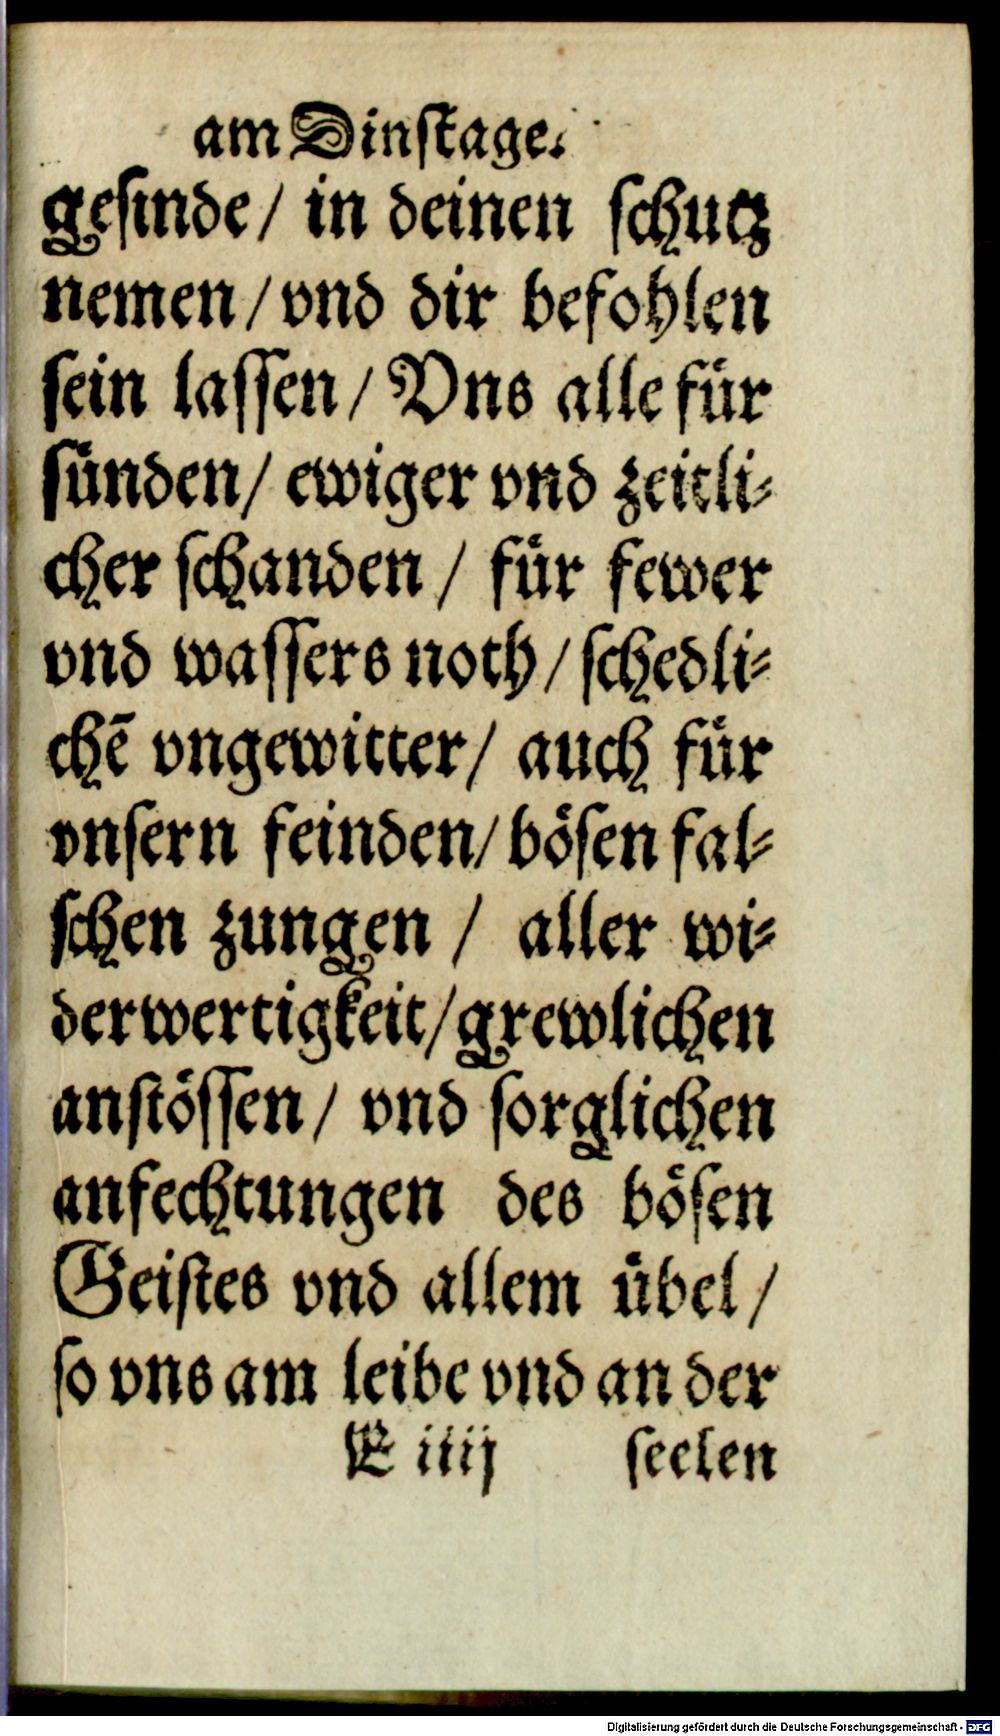 am Dinstage.
gesinde/ in deinen schutz
nemen/ vnd dir befohlen
sein lassen/ Vns alle für
sünden/ ewiger vnd zeitli⸗
cher schanden/ für fewer
vnd wassers noth/ schedli⸗
chē vngewitter/ auch für
vnsern feinden/ bösen fal⸗
schen zungen/ aller wi⸗
derwertigkeit/ grewlichen
anstössen/ vnd sorglichen
anfechtungen des bösen
Geistes vnd allem übel/
so vns am leibe vnd an der
iiij seelen
Digitalisierung gefördert durch die Deutsche Forschungsgemeinschaft - DFG